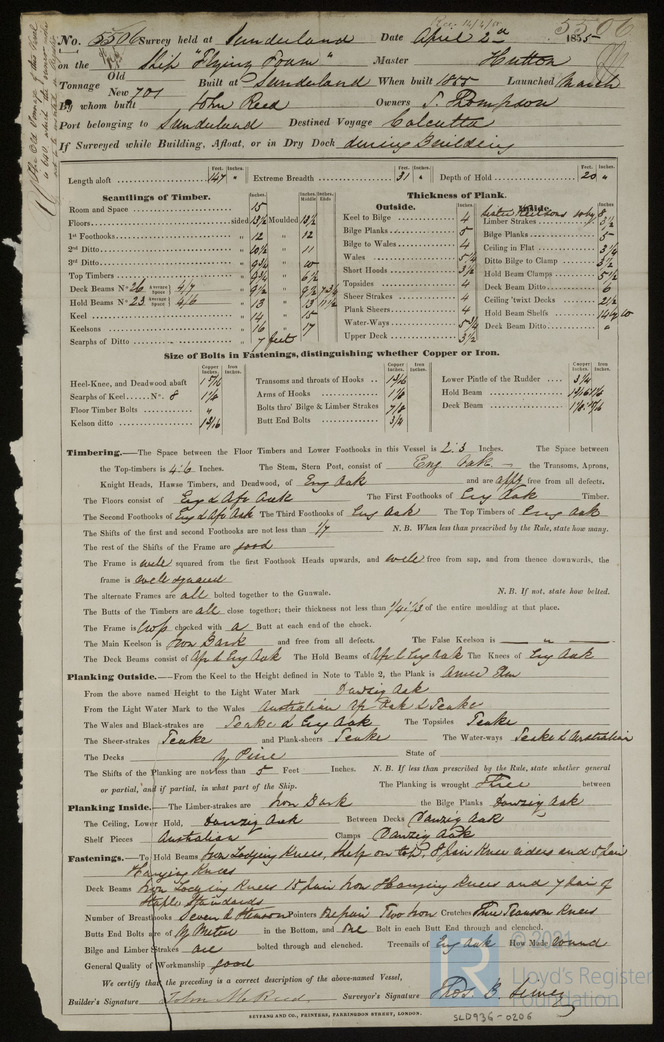 No. 5506 Survey held at Sunderland Date April 2d 1855
5506
on the Ship "Flying Foam" Master Hutton
Tonnage Old New 701 Built at Sunderland When built 1855 Launched March
By whom built John Reed Owners J. Thompson
Port belonging to Sunderland Destined Voyage Calcutta
If Surveyed while Building, Afloat, or in Dry Dock during Building
Feet. Inches. Feet. Inches. Feet. Inches.
Length aloft 147 " Extreme Breadth 31 " Depth of Hold 20 "
Scantlings of Timber.
Room and Space 15
Floors sided 13½ Moulded 13½
1st Foothooks " 12 " 12
2nd Ditto " 10½ " 11
3rd Ditto " 9¾ " 10
Top Timbers " 9¾ " 6½
Deck Beams No. 26 Average Space 4/7 " 9½ " 9½ 7¾
Hold Beams No. 23 Average Space 4/6 " 13 " 13
Keel " 14 " 15
Keelsons " 16 " 17
Scarphs of Ditto " 7 feet
Thickness of Plank.
Outside.
Keel to Bilge 4
Bilge Planks 5
Bilge to Wales 4
Wales 5¼
Short Hoods 3½
Topsides 4
Sheer Strakes 4
Plank Sheers 4
Water-Ways 5¾
Upper Deck 3½
Inside.
Limber Strakes 5½
Bilge Planks 5
Ceiling in Flat 3¼
Ditto Bilge to Clamp 3½
Hold Beam Clamps 5½
Deck Beam Ditto 6
Ceiling 'twixt Decks 2½
Hold Beam Shelfs 14 by 10
Deck Beam Ditto "
Size of Bolts in Fastenings, distinguishing whether Copper or Iron.
Copper Inches. Iron Inches. Copper Inches. Iron Inches. Copper Inches. Iron Inches.
Heel-Knee, and Deadwood abaft
Scarphs of Keel No. 8 1⅛
Floor Timber Bolts "
Kelson ditto 1 3/16
Transoms and throats of Hooks 1 3/16
Arms of Hooks 1⅛
Bolts thro' Bilge & Limber Strakes 7/8
Butt End Bolts 3/4
Lower Pintle of the Rudder 3¼
Hold Beam
Deck Beam
Timbering.—The Space between the Floor Timbers and Lower Foothooks in this Vessel is 2.3 Inches. The Space between
the Top-timbers is 4.6 Inches. The Stem, Stern Post, consist of Eng Oak the Transoms, Aprons,
Knight Heads, Hawse Timbers, and Deadwood, of Eng Oak and are free from all defects.
The Floors consist of Eng & Afr Oak The First Foothooks of Eng Oak Timber.
The Second Foothooks of Eng & Afr Oak The Third Foothooks of Eng Oak The Top Timbers of Eng Oak
The Shifts of the first and second Foothooks are not less than 1/7 N.B. When less than prescribed by the Rule, state how many.
The rest of the Shifts of the Frame are good
The Frame is well squared from the first Foothook Heads upwards, and well free from sap, and from thence downwards, the
frame is well squared
The alternate Frames are all bolted together to the Gunwale. N.B. If not, state how bolted.
The Butts of the Timbers are all close together; their thickness not less than 1/4 & 1/3 of the entire moulding at that place.
The Frame is chocked with a Butt at each end of the chock.
The Main Keelson is Iron Bark and free from all defects. The False Keelson is — " —
The Deck Beams consist of Afr & Eng Oak The Hold Beams of Afr & Eng Oak The Knees of Eng Oak
Planking Outside.—From the Keel to the Height defined in Note to Table 2, the Plank is Amer Elm
From the above named Height to the Light Water Mark Danzig Oak
From the Light Water Mark to the Wales Australian Afr Oak & Teake
The Wales and Black-strakes are Teake & Eng Oak The Topsides Teake
The Sheer-strakes Teake and Plank-sheers Teake The Water-ways Teake & Australian
The Decks Y Pine State of
The Shifts of the Planking are not less than 5 Feet Inches. N.B. If less than prescribed by the Rule, state whether general
or partial, and if partial, in what part of the Ship. The Planking is wrought Three between
Planking Inside.—The Limber-strakes are Iron Bark the Bilge Planks Danzig Oak
The Ceiling, Lower Hold, Danzig Oak Between Decks Danzig Oak
Shelf Pieces Australian Clamps Danzig Oak
Fastenings.—To Hold Beams Iron Lodging Knees, Shelp on top, 8 pair Knee riders and 5 pair
Hanging Knees
Deck Beams Iron Lodging Knees 15 pair Iron Hanging Knees and 7 pair of
Staple Standards
Number of Breasthooks Seven & Stemson Pointers One pair Two Iron Crutches Three Transom Knees
Butts End Bolts are of Y Metal in the Bottom, and One Bolt in each Butt End through and clenched.
Bilge and Limber Strakes are bolted through and clenched. Treenails of Eng Oak How Made Round
General Quality of Workmanship good
We certify that the preceding is a correct description of the above-named Vessel,
Builder's Signature John M Reed Surveyor's Signature Thos. B. Simey
SEYFANG AND CO., PRINTERS, FARRINGDON STREET, LONDON.
SLD936-0206
© 2021
LR
Lloyd's Register
Foundation